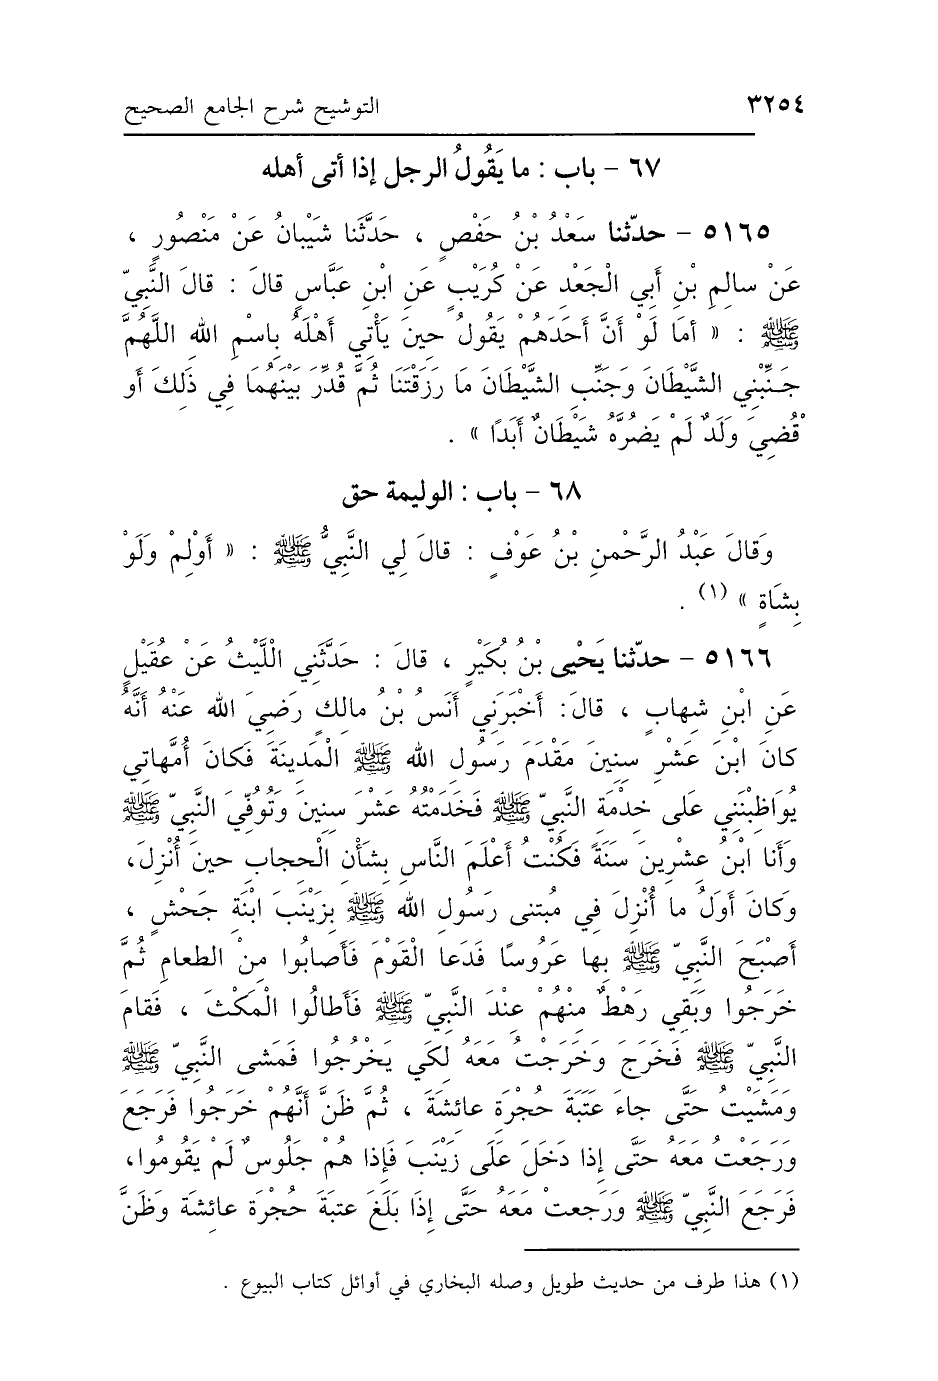 ٣٢٥٤ التوشيح شرح الجامع الصحيح
٦٧ – باب : ما يَقُولُ الرجل إذا أتى أهله
٥١٦٥ – حدّثنا سَعْدُ بْنُ حَفْصٍ ، حَدَّثَنا شَيْبانُ عَنْ مَنْصُورٍ ،
عَنْ سالِمِ بْنِ أَبي الْجَعْدِ عَنْ كُرَيْبٍ عَنِ ابْنِ عَبَّاسٍ قالَ : قالَ النَّبِيّ
ﷺ : « أَمَا لَوْ أَنَّ أَحَدَهُمْ يَقُولُ حينَ يَأْتِي أَهْلَهُ بِاسْمِ الله اللَّهُمَّ
جَنِّبْنِي الشَّيْطَانَ وَجَنِّبِ الشَّيْطَانَ مَا رَزَقْتَنَا ثُمَّ قُدِّرَ بَيْنَهُمَا فِي ذَلِكَ أَو
قُضِيَ وَلَدٌ لَمْ يَضُرَّهُ شَيْطَانٌ أَبَدًا » .
٦٨ – باب : الوليمة حق
وَقالَ عَبْدُ الرَّحْمنِ بْنُ عَوْفٍ : قالَ لِي النَّبِيُّ ﷺ : « أَوْلِمْ وَلَوْ
بِشَاةٍ » (١) .
٥١٦٦ – حدّثنا يَحْيى بْنُ بُكَيْرٍ ، قالَ : حَدَّثَنِي اللَّيْثُ عَنْ عُقَيْلٍ
عَنِ ابْنِ شهابٍ ، قالَ: أَخْبَرَنِي أَنَسُ بْنُ مالكٍ رَضِيَ الله عَنْهُ أَنَّهُ
كانَ ابْنَ عَشْرِ سِنِينَ مَقْدَمَ رَسُولِ الله ﷺ الْمَدِينَةَ فَكَانَ أُمَّهاتِي
يُوَاظِبْنَنِي عَلَى خِدْمَةِ النَّبِيّ ﷺ فَخَدَمْتُهُ عَشْرَ سِنِينَ وَتُوُفِّيَ النَّبِيّ ﷺ
وَأَنا ابْنُ عِشْرِينَ سَنَةً فَكُنْتُ أَعْلَمَ النَّاسِ بِشَأْنِ الْحجابِ حينَ أُنْزِلَ،
وَكانَ أَوَلُ ما أُنْزِلَ فِي مُبتنى رَسُولِ الله ﷺ بِزَيْنَبَ ابْنَةِ جَحْشٍ ،
أَصْبَحَ النَّبِيّ ﷺ بِها عَرُوسًا فَدَعا الْقَوْمَ فَأَصابُوا مِنْ الطعامِ ثُمَّ
خَرَجُوا وَبَقِي رَهْطٌ مِنْهُمْ عِنْدَ النَّبِيّ ﷺ فَأَطالُوا الْمَكْثَ ، فَقامَ
النَّبِيّ ﷺ فَخَرَجَ وَخَرَجْتُ مَعَهُ لِكَي يَخْرُجُوا فَمَشى النَّبِيّ ﷺ
وَمَشَيْتُ حَتَّى جاءَ عَتَبَةَ حُجْرَةِ عائِشَةَ ، ثُمَّ ظَنَّ أَنَّهُمْ خَرَجُوا فَرَجَعَ
وَرَجَعْتُ مَعَهُ حَتَّى إِذا دَخَلَ عَلَى زَيْنَبَ فَإِذا هُمْ جَلُوسٌ لَمْ يَقُومُوا،
فَرَجَعَ النَّبِيّ ﷺ وَرَجَعتْ مَعَهُ حَتَّى إِذَا بَلَغَ عتبَةَ حُجْرَة عائِشَة وَظَنَّ
(١) هذا طرف من حديث طويل وصله البخاري في أوائل كتاب البيوع .